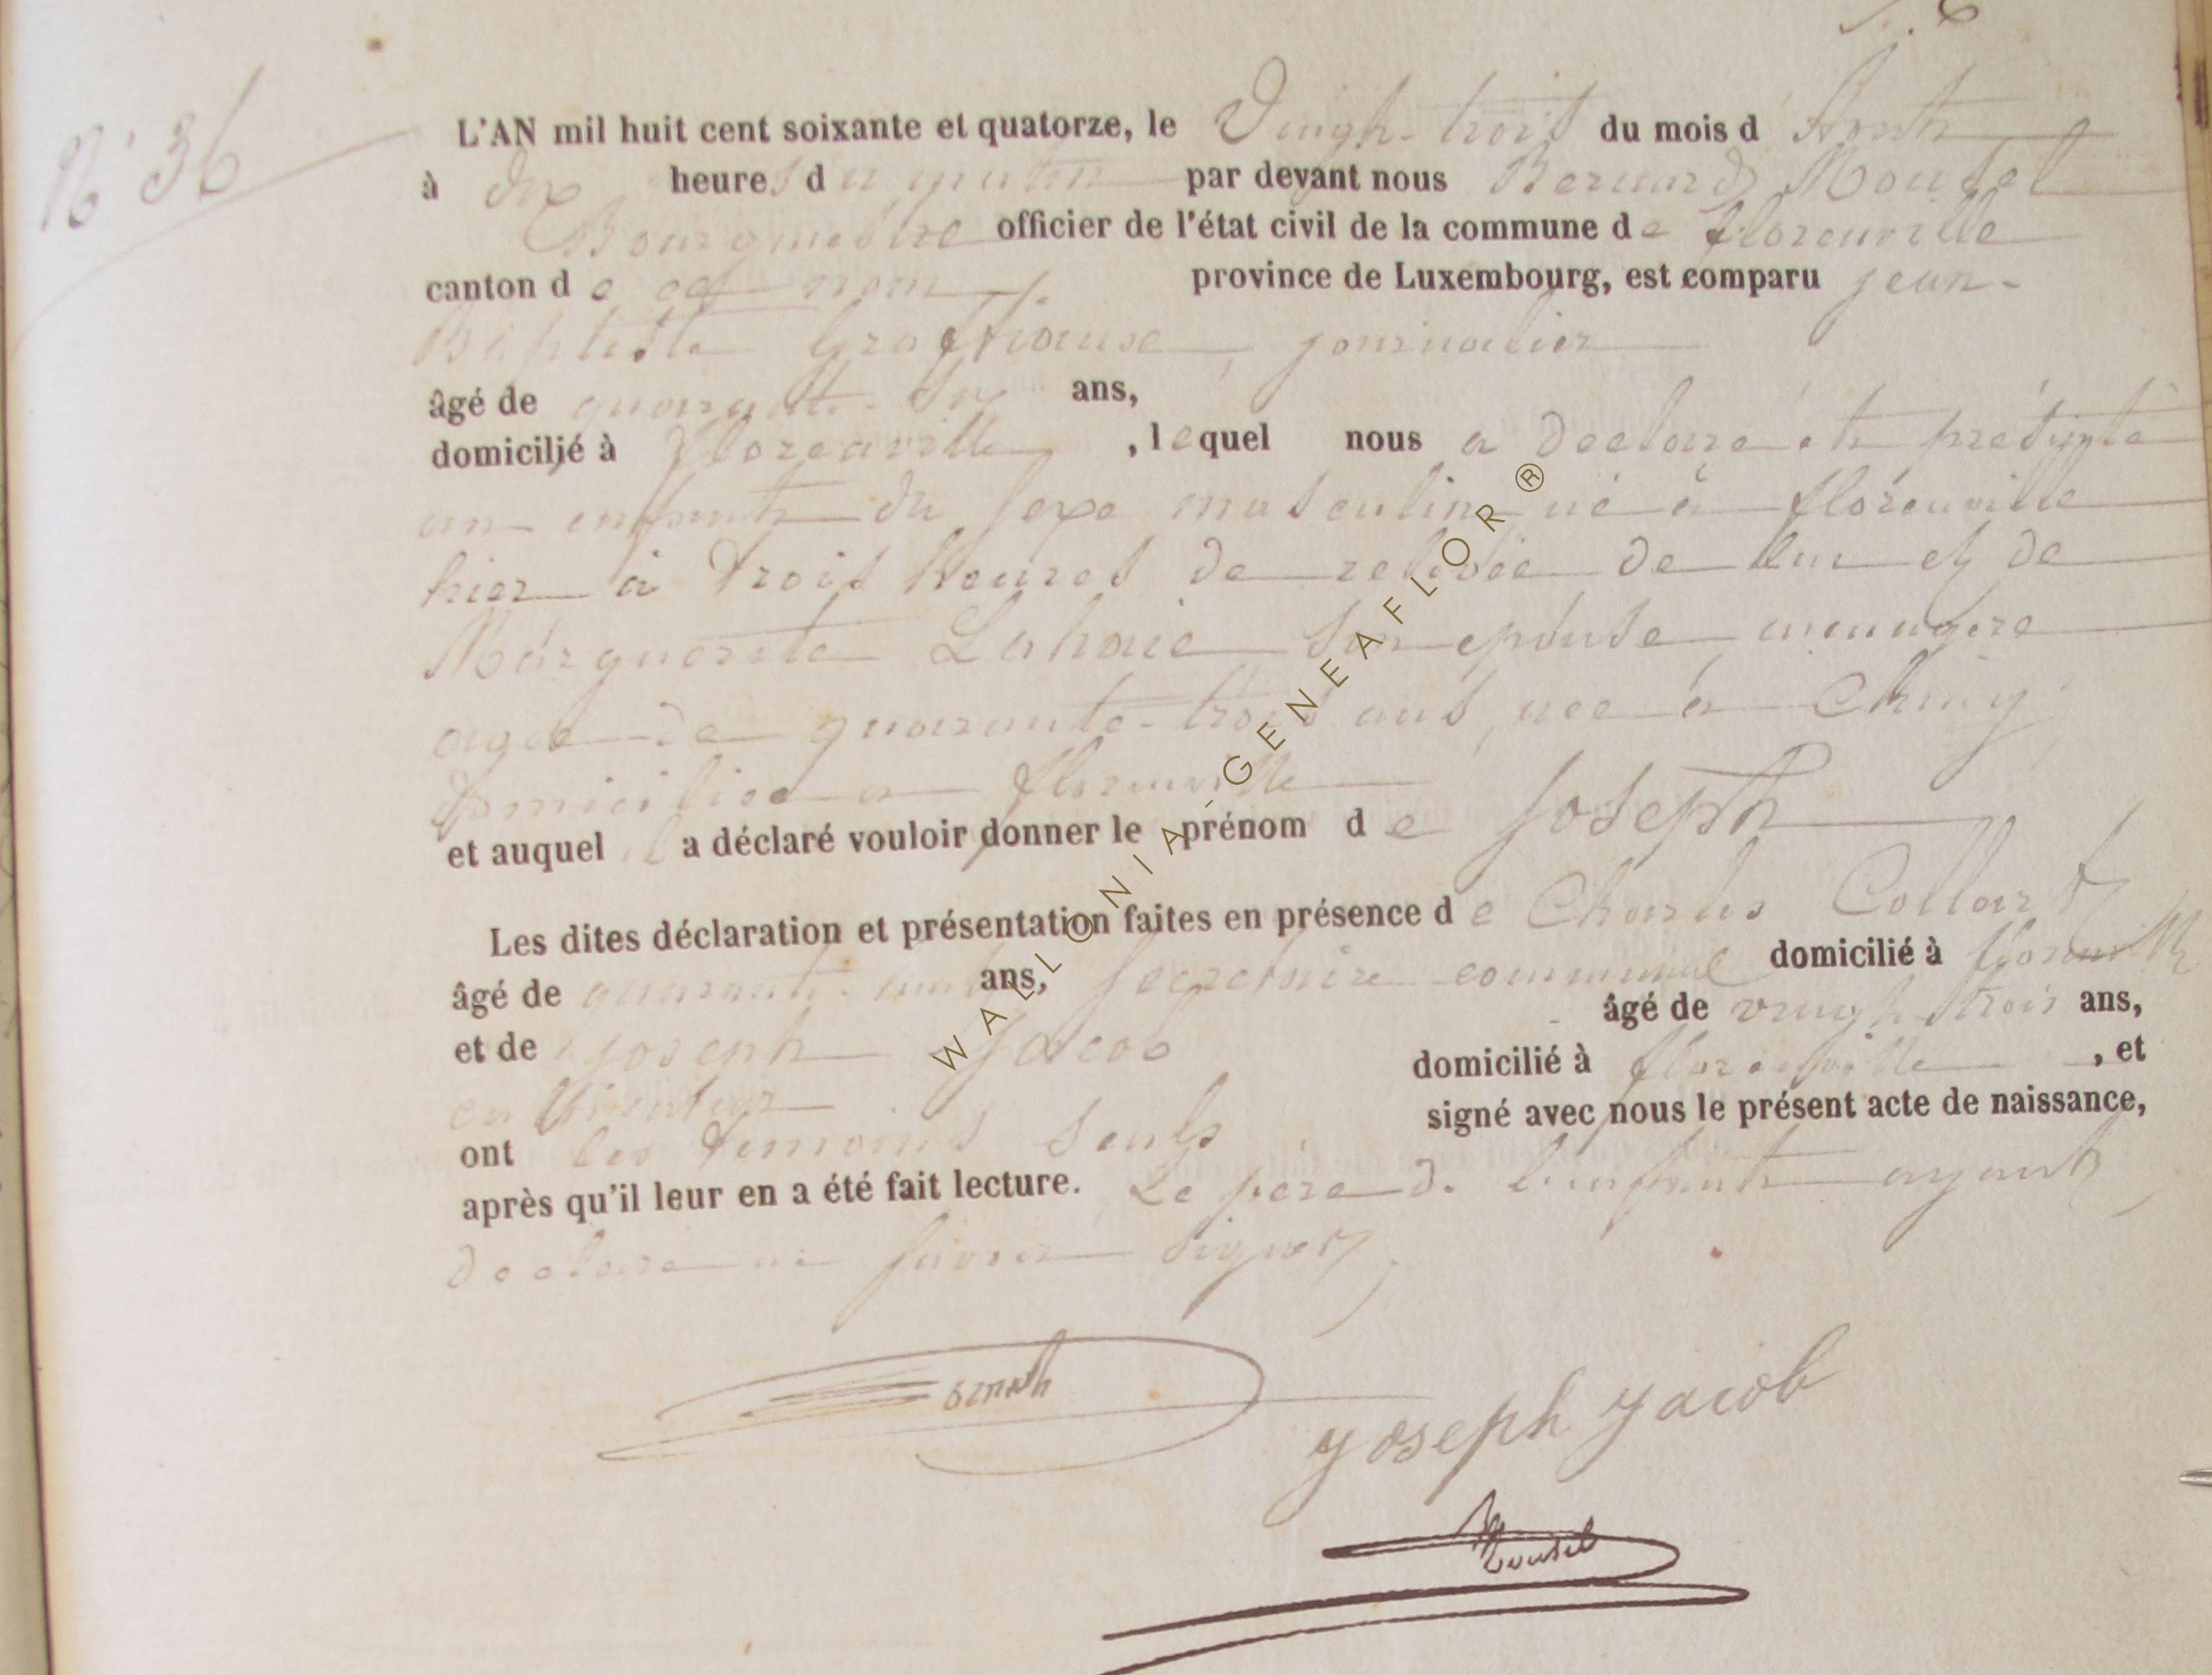 N° 36
L'AN mil huit cent soixante et quatorze, le Vingt-trois du mois d'Août
à dix heures du matin par devant nous Bernard Mousel
Bourgmestre officier de l'état civil de la commune de florenville
canton de ce nom province de Luxembourg, est comparu jean-
Baptiste journalier
âgé de quarante- ans,
domicilié à florenville, lequel nous a déclaré et présenté
un enfant du sexe masculin né à florenville
hier à trois heures de relevée de lui et de
Marguerite Lahaie son épouse ménagère
agée de quarante-trois ans, née à Chiny
domiciliée à florenville
et auquel il a déclaré vouloir donner le prénom de Joseph
Les dites déclaration et présentation faites en présence de Charles Collard
âgé de quarante- ans, secrétaire communal domicilié à florenville
et de joseph jacob âgé de vingt trois ans,
cultivateur domicilié à florenville, et
ont les témoins seuls signé avec nous le présent acte de naissance,
après qu'il leur en a été fait lecture. Le père de l'enfant ayant
déclaré ne savoir signer
joseph jacob
Mousel
WALLONIA-GENEAFLOR ®